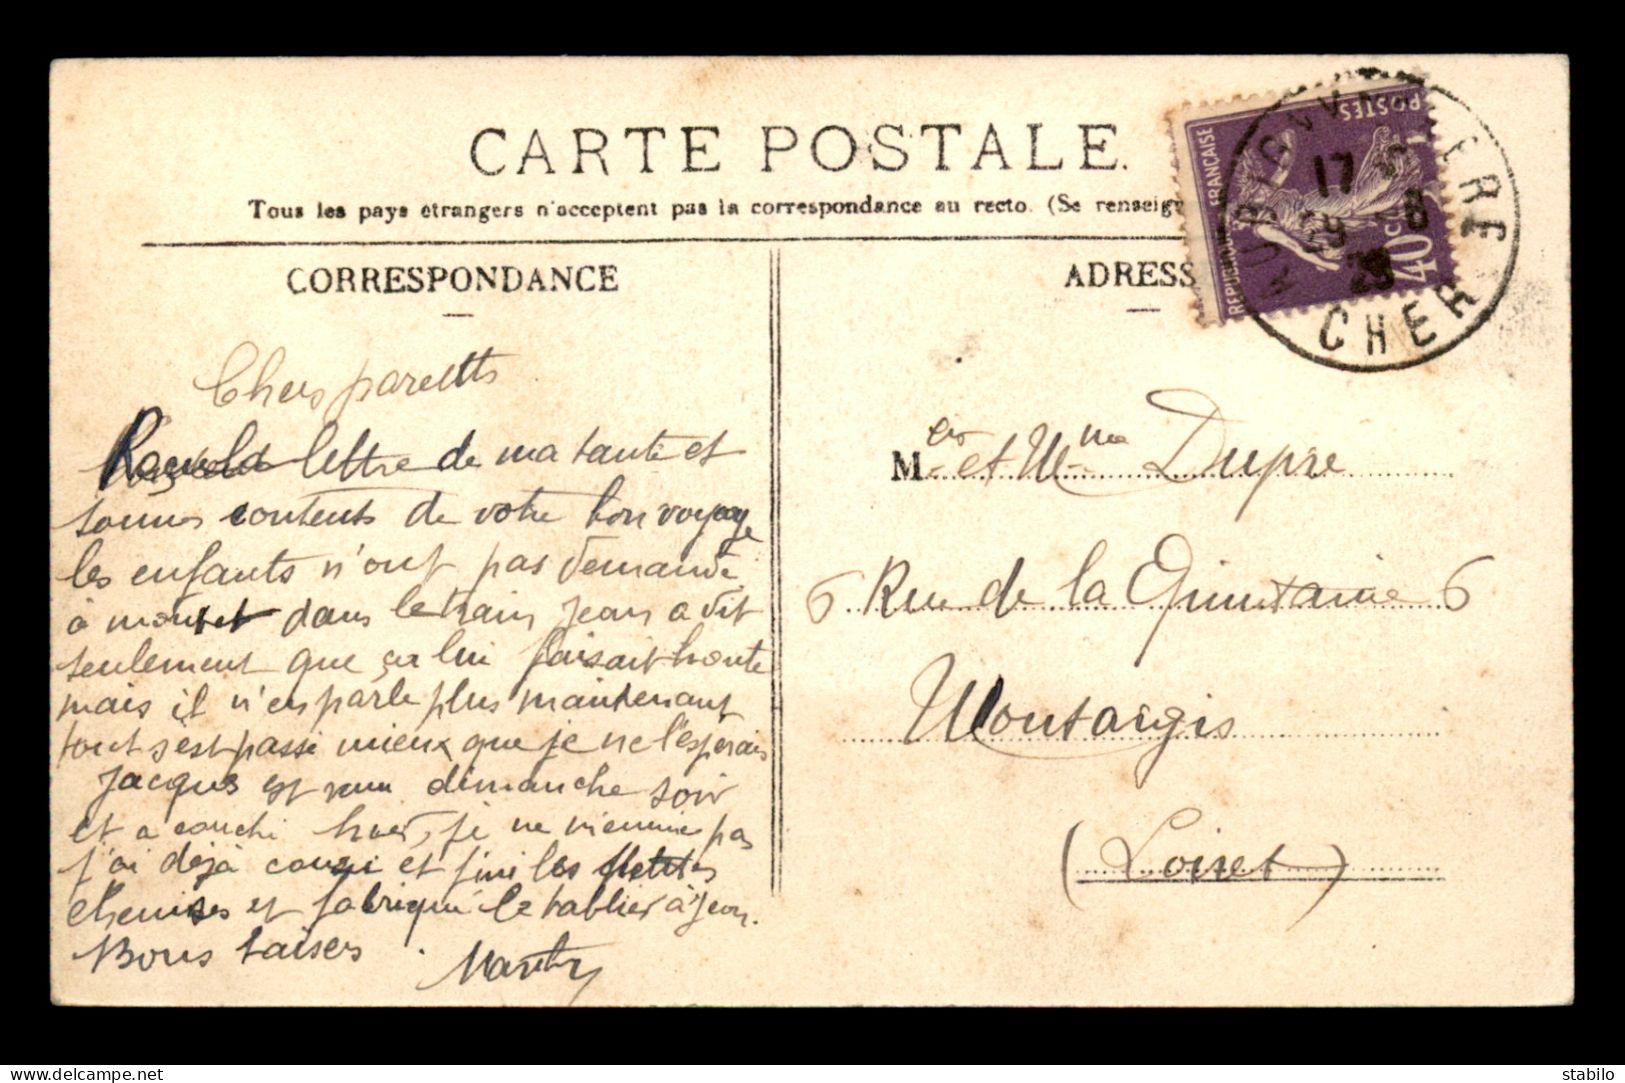 CARTE POSTALE.
Tous les pays étrangers n'acceptent pas la correspondance au recto. (Se renseig
CORRESPONDANCE
ADRESS
REPUBLIQUE FRANÇAISE
POSTES
40 C
17
29 8
CHER
Chers parents
Reçu la lettre de ma tante et
sommes contents de votre bon voyage
les enfants n'ont pas demandé
à monter dans le train Jean a dit
seulement que ça lui faisait honte
mais il n'en parle plus maintenant
tout s'est passé mieux que je ne l'esperais
Jacques est venu dimanche soir
et a couché hier, je ne m'ennuie pas
j'ai déjà cousu et fini les petites
chemises et fabriqué le tablier à Jean.
Bons baisers
Mer et Mme Dupre
6 Rue de la Quintaine 6
Montargis
(Loiret)
stabilo
delcampe.net